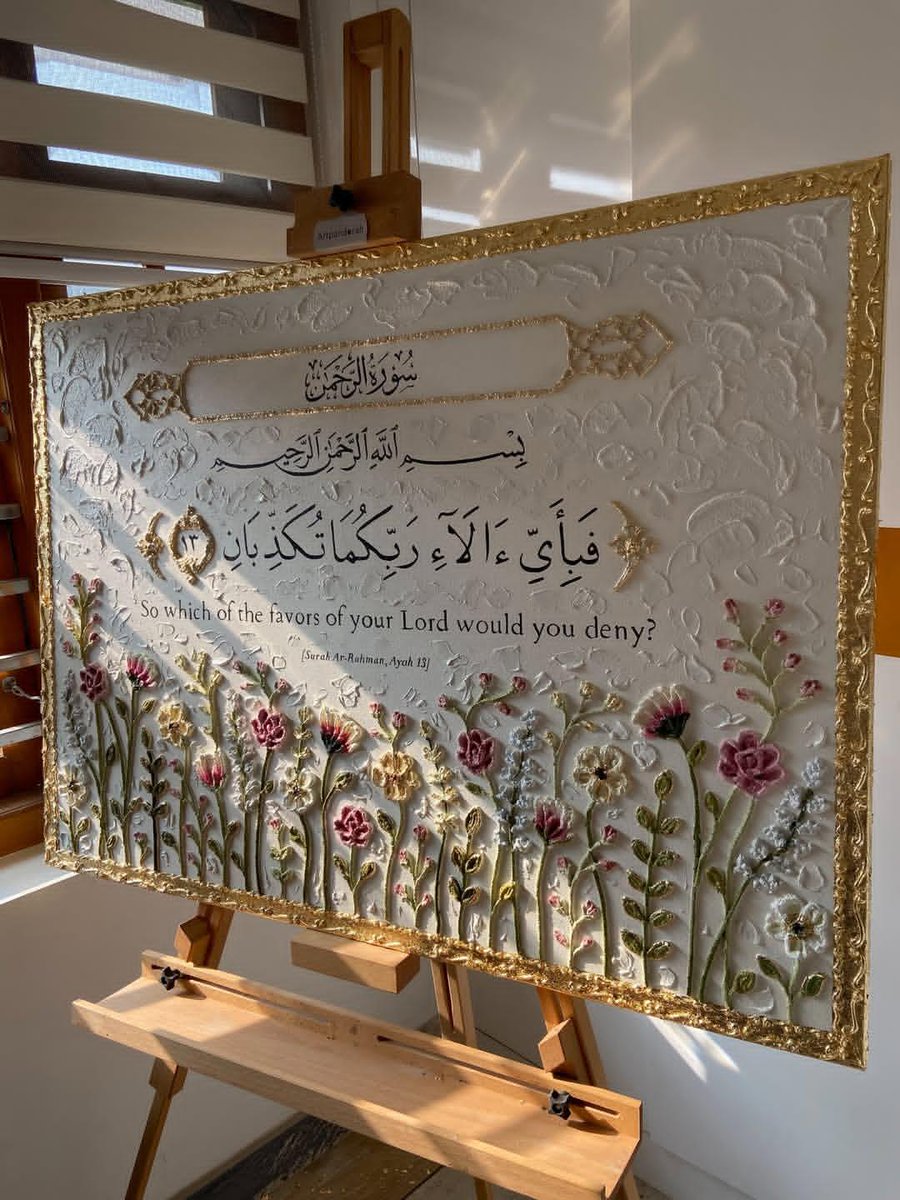 Artpandorah
سُورَةُ الرَّحْمَٰن
بِسْمِ ٱللَّهِ ٱلرَّحْمَٰنِ ٱلرَّحِيمِ
فَبِأَيِّ ءَالَآءِ رَبِّكُمَا تُكَذِّبَانِ ١٣
So which of the favors of your Lord would you deny?
[Surah Ar-Rahman, Ayah 13]